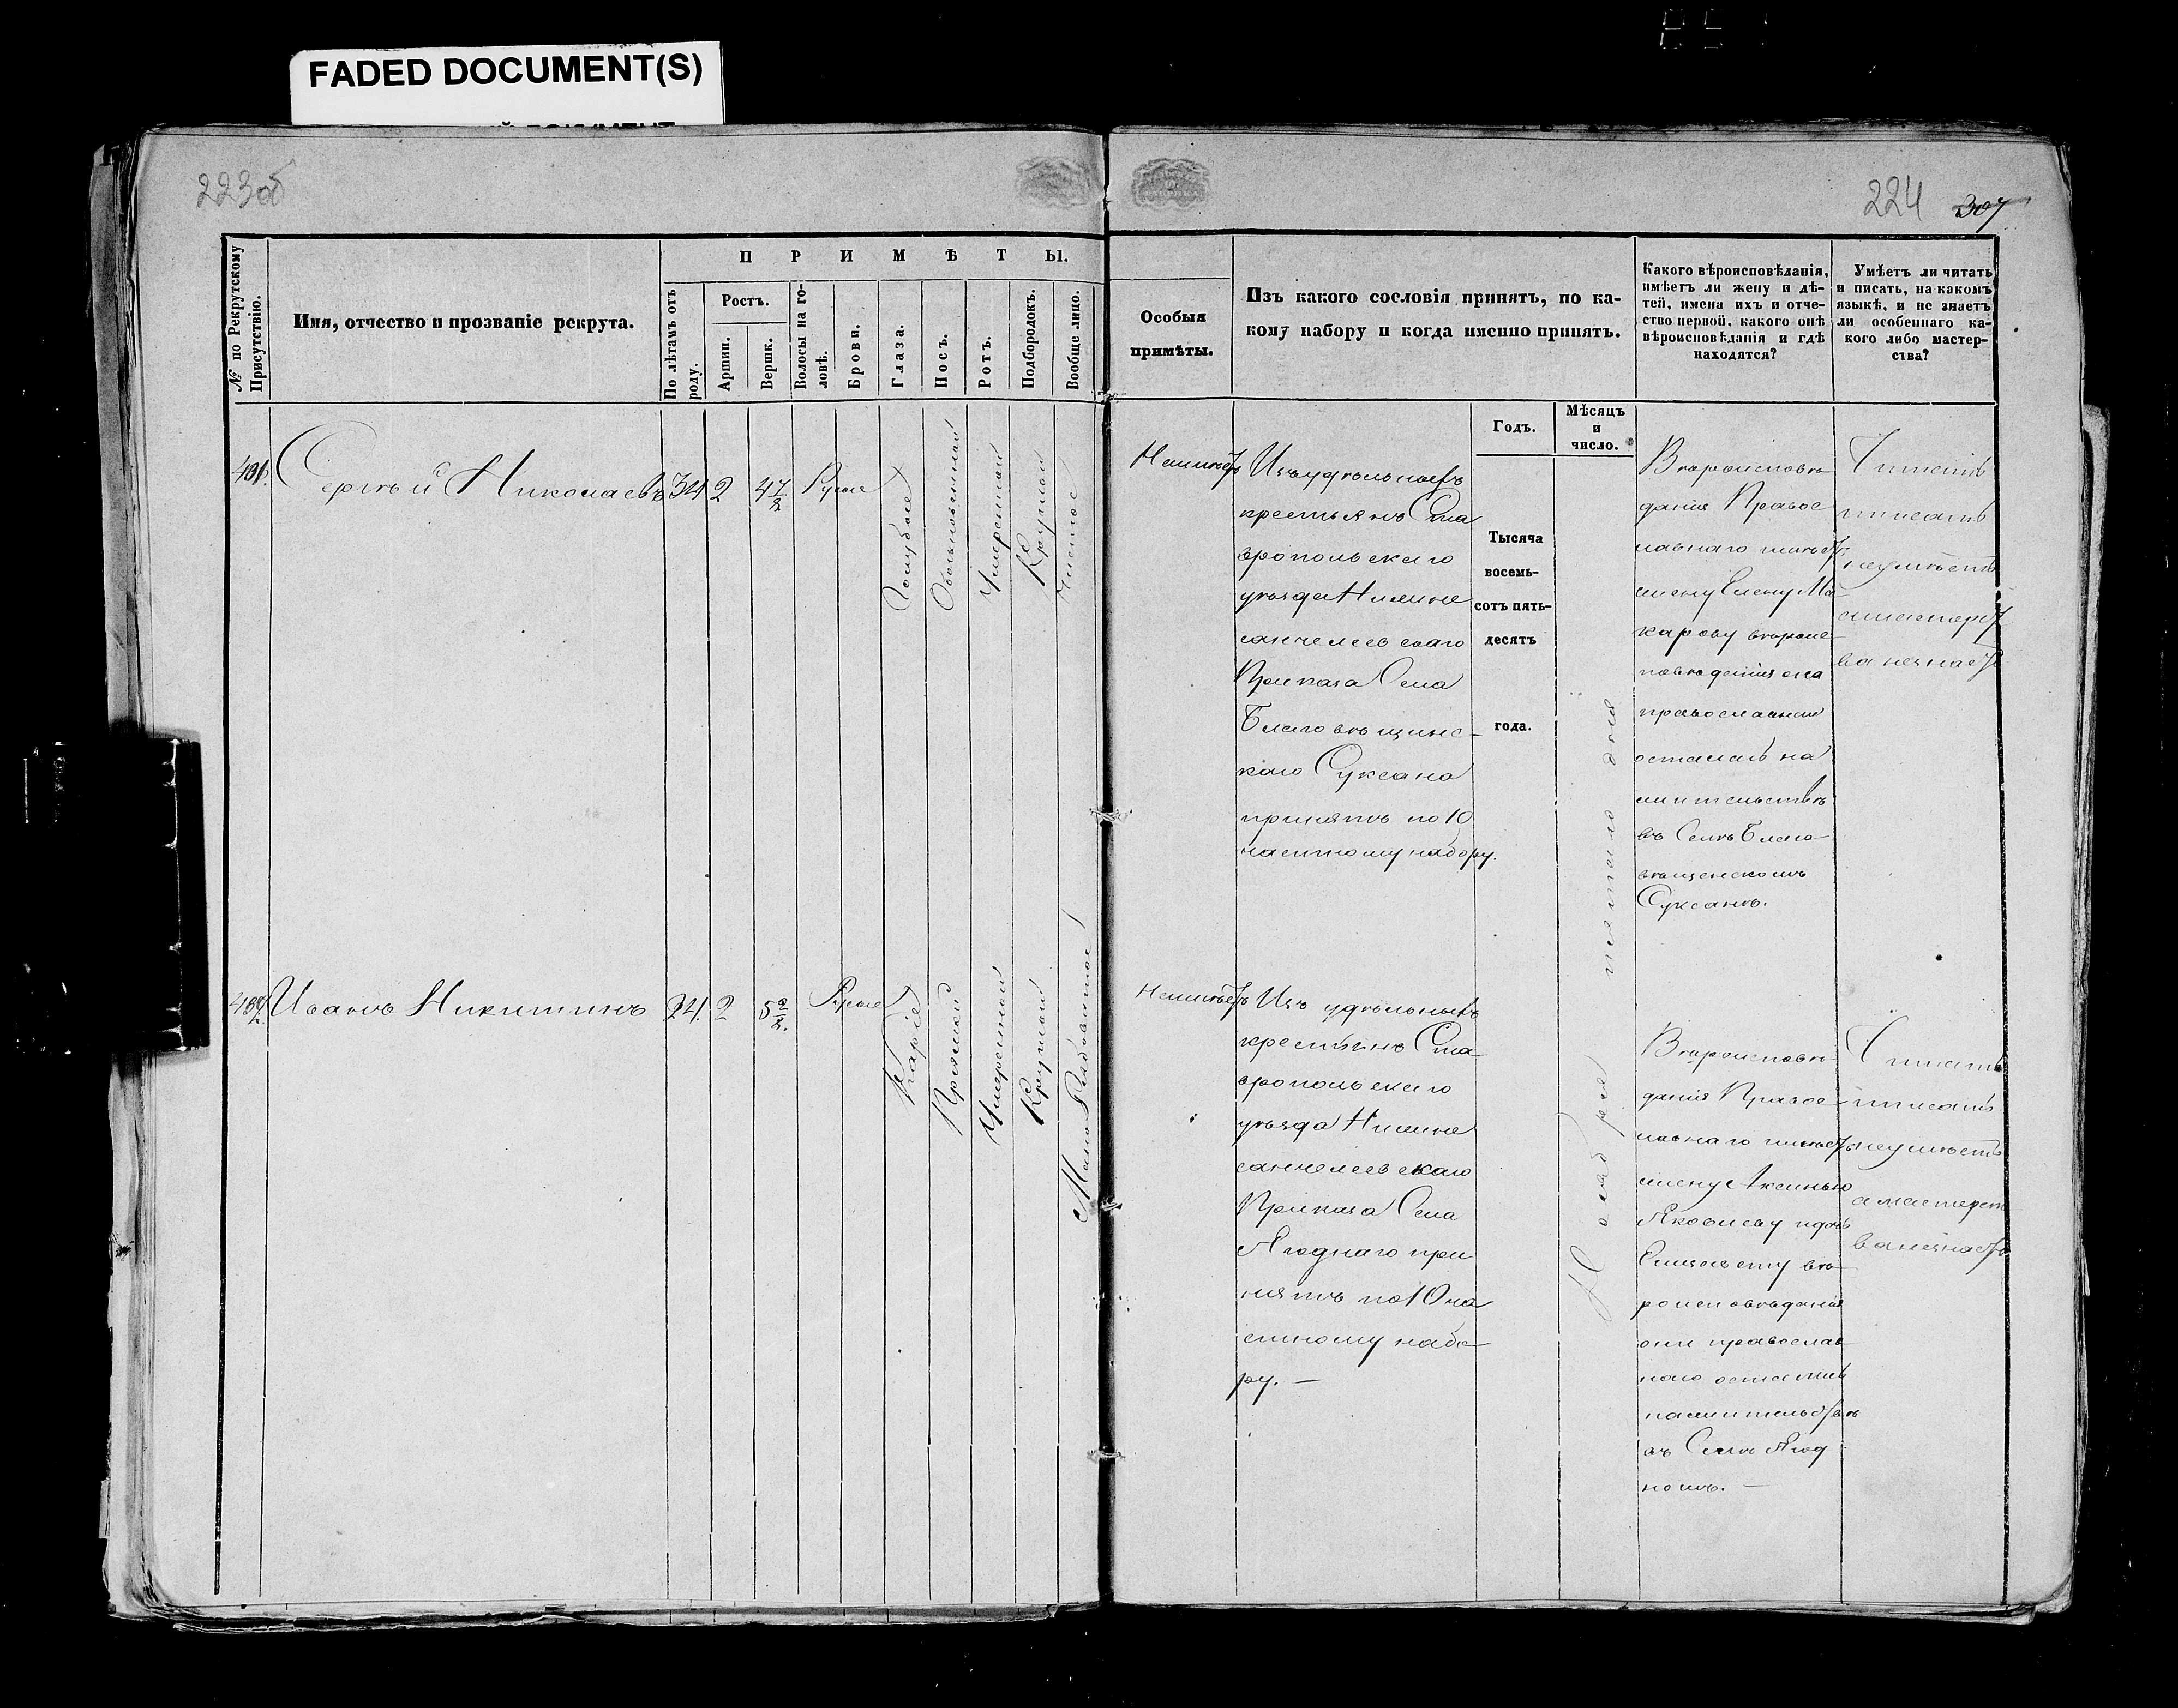 FADED DOCUMENT(S)
223об
224 307
№ по Рекрутскому Присутствію.
Имя, отчество и прозваніе рекрута.
П Р И М Ѣ Т Ы.
По лѣтамъ отъ роду.
Ростъ.
Аршин.
Вершк.
Волосы на головѣ.
Брови.
Глаза.
Носъ.
Ротъ.
Подбородокъ.
Вообще лицо.
Особыя
примѣты.
Изъ какого сословія принятъ, по ка-
кому набору и когда именно принятъ.
Какого вѣроисповѣданія,
имѣетъ ли жену и дѣ-
тей, имена ихъ и отче-
ство первой, какого онѣ
вѣроисповѣланія и гдѣ
находятся?
Умѣетъ ли читать
и писать, на какомъ
языкѣ, и не знаетъ
ли особеннаго ка-
кого либо мастер-
ства?
Годъ.
Мѣсяцъ
и
число.
Тысяча
восемь-
сотъ пять-
десятъ
года.
Ноября пятаго дня
Сергѣй Николаевъ 34 2 Русые
Голубые
Обыкновенной
Умеренной
Круглой
Чистое
Неимѣетъ
Изъ удѣльныхъ
крестьянъ Ста
вропольскаго
уѣзда Нижне
санчелеевскаго
Приказа Села
Благовѣщинс-
каго Суксана
принятъ по 10
частному набору.
Вѣроисповѣ
данія Правос
лавнаго имѣетъ
жену Елену Ма
карову вѣроис
повѣданія она
православнаго
осталась на
жительствѣ
въ Селѣ Благо
вѣщенскомъ
Суксанѣ.
Читать
писать
неумѣетъ
амастерст
ва незнаетъ
Иванъ Никитинъ 24. 2 Русые
Каріе
Прямой
Умеренной
Круглой
Мало Рябоватое
Неимѣетъ
Изъ удѣльныхъ
крестьянъ Ста
вропольскаго
уѣзда Нижне
санчелеевскаго
Приказа Села
Ягоднаго при
нятъ по 10 ча
стному набо
ру. —
Вѣроисповѣ
данія Правос
лавнаго имѣетъ
жену Аксинью
Яковлеву и дочь
Елизавету вѣ
роисповѣданія
они православ
наго остались
на жительствѣ
въ Селѣ Ягод
номъ. —
Читать
писать
неумѣетъ
амастерст
ва незнаетъ